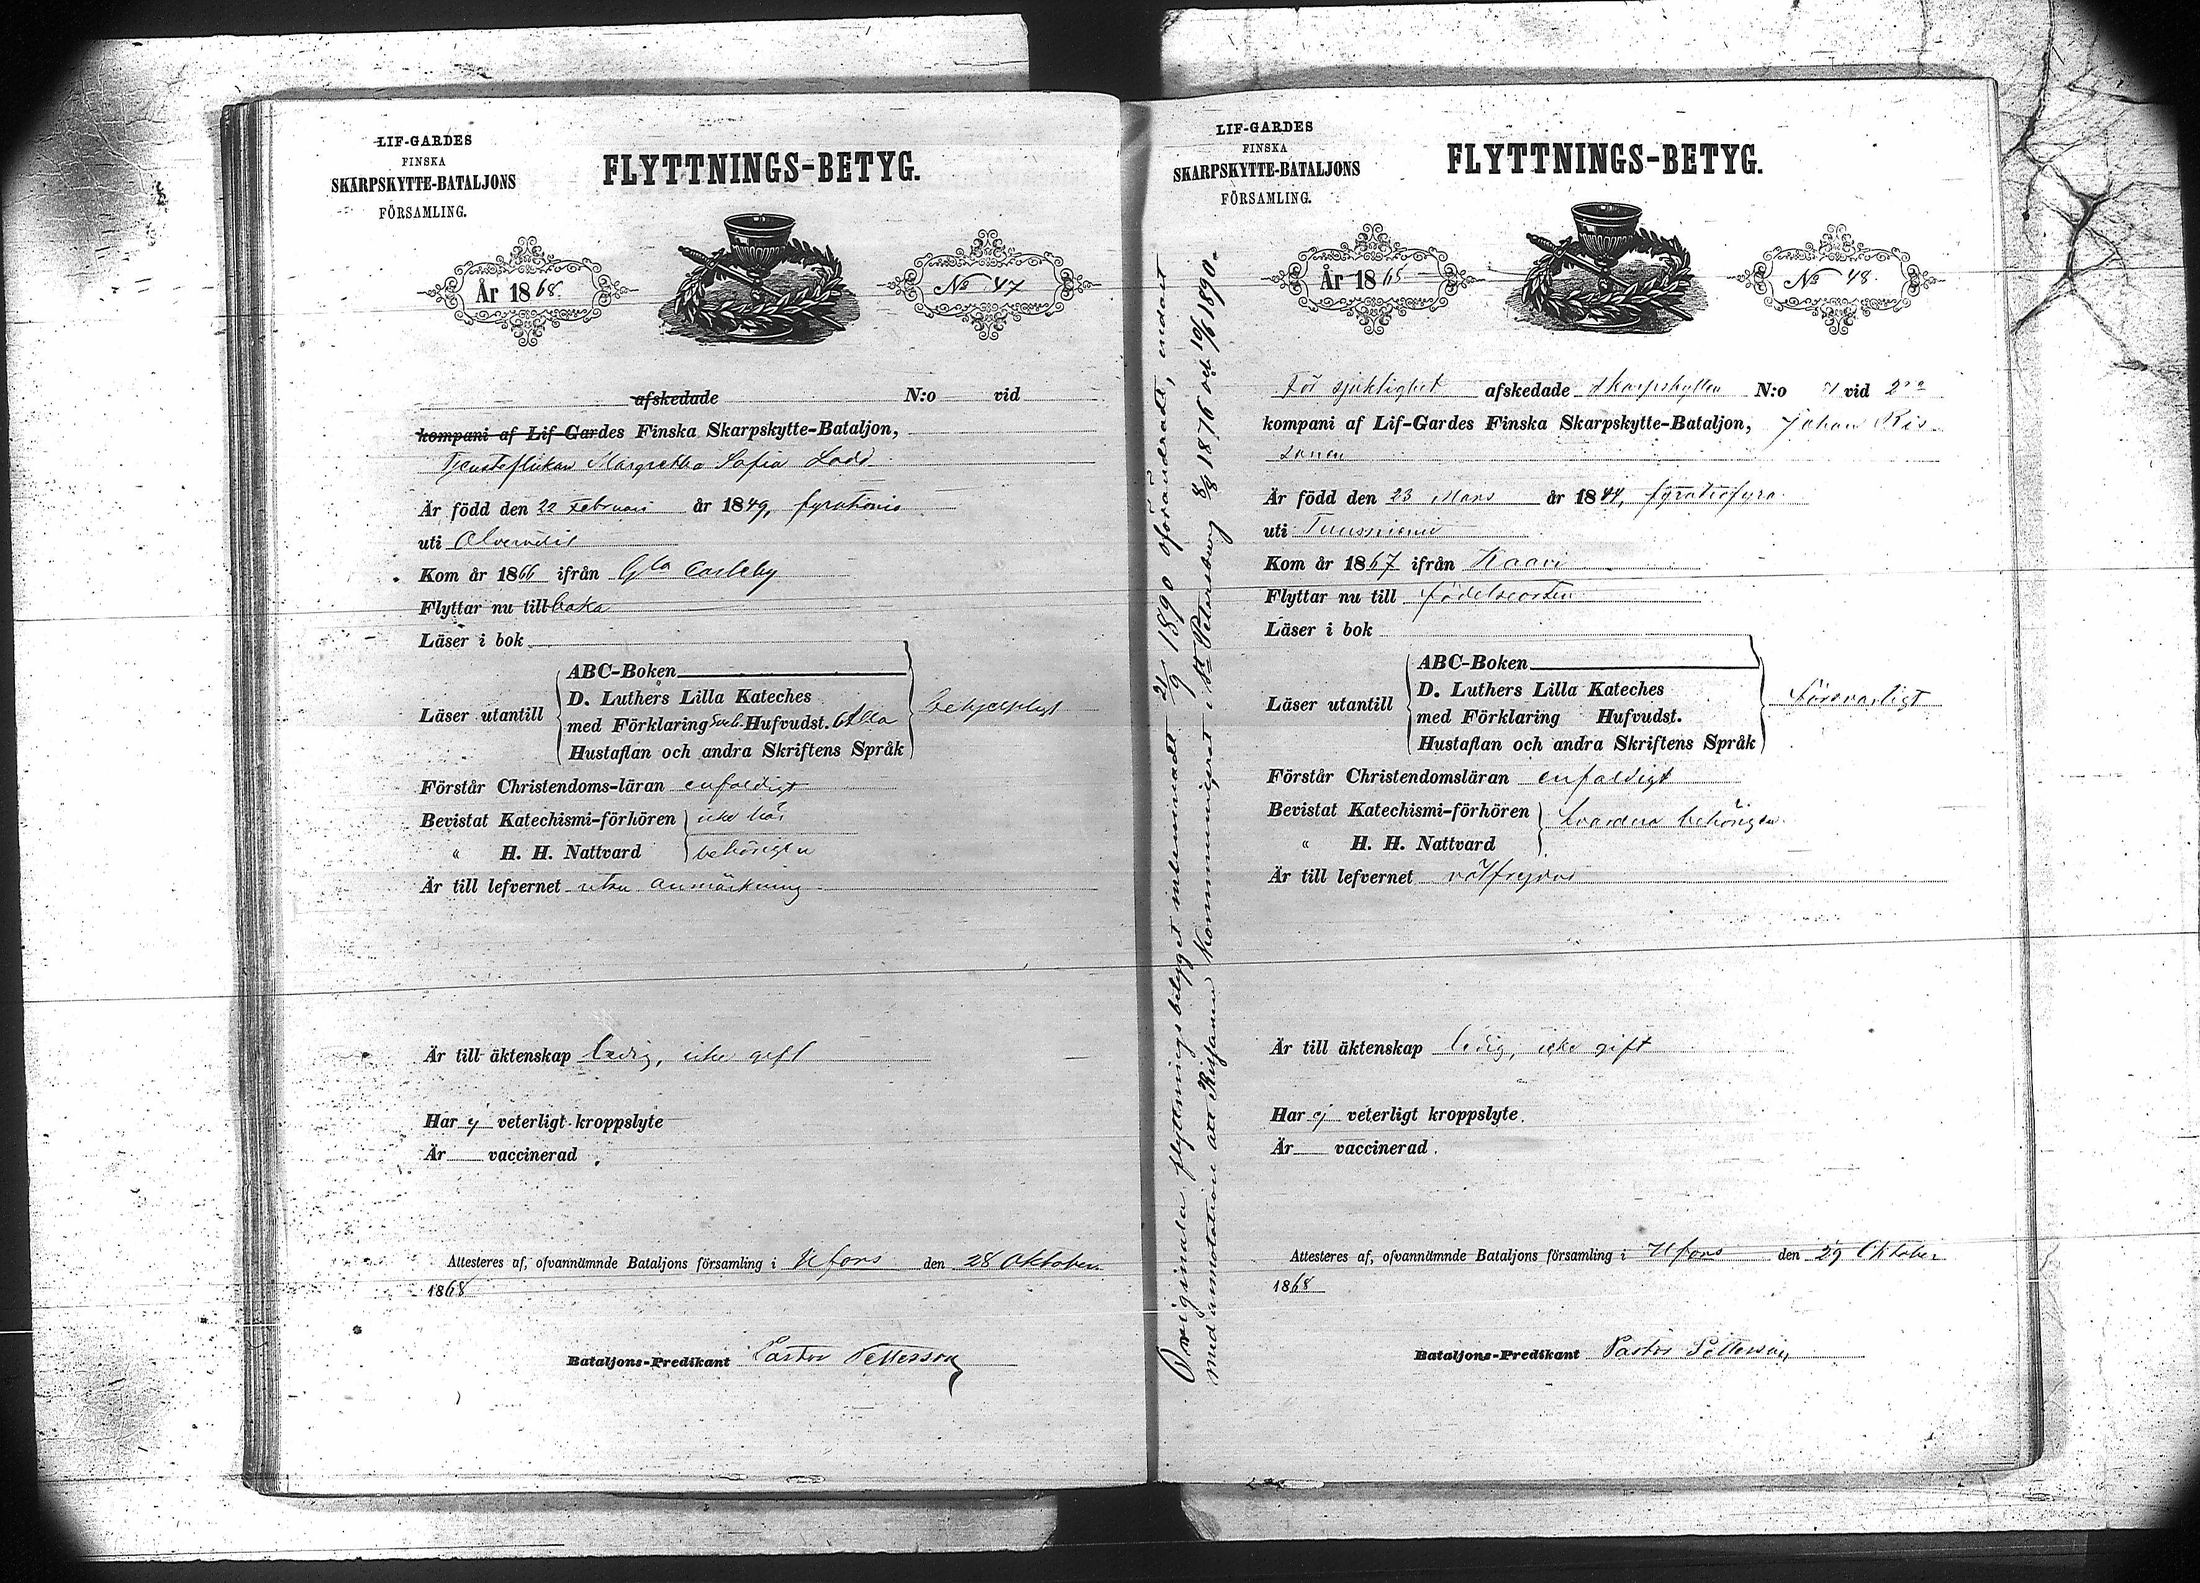 LIF-GARDES
FINSKA
SKARPSKYTTE-BATALJONS
FÖRSAMLING.
FLYTTNINGS-BETYG.
År 1868.
No 47
afskedade N:o vid
kompani af Lif-Gardes Finska Skarpskytte-Bataljon,
Tjensteflickan Margretha Sofia Ladd
Är född den 22 Februari år 1849, fyrationio
uti
Kom år 1866 ifrån Gla Carleby
Flyttar nu tillbaka
Läser i bok
ABC-Boken
D. Luthers Lilla Kateches
Läser utantill
med Förklaring Hufvudst. Alla
behjelpligt
Hustaflan och andra Skriftens Språk
Förstår Christendoms-läran enfaldigt
Bevistat Katechismi-förhören icke här
" H. H. Nattvard behörigen
Är till lefvernet utan anmärkning
Är till äktenskap ledig, icke gift
Har ej veterligt kroppslyte
Är vaccinerad.
Attesteres af, ofvannämnde Bataljons församling i Hfors den 28 Oktober
1868
Bataljons-Predikant Pastor Petterson
Originala flyttningsbetyget inlemnadt 21/9 1890 oförändradt, endast
med annotation att Rissanen kommunigerat i St Petersburg 8/8 1876 och 10/6 1890.
LIF-GARDES
FINSKA
SKARPSKYTTE-BATALJONS
FÖRSAMLING.
FLYTTNINGS-BETYG.
År 1865
No 48.
För sjuklighet afskedade skarpskytten N:o 71 vid 2dra
kompani af Lif-Gardes Finska Skarpskytte-Bataljon, Johan Ris
sanen
Är född den 23 Mars år 1844, fyratiofyra
uti Tuusniemi
Kom år 1867 ifrån Kaavi
Flyttar nu till födelseorten
Läser i bok
ABC-Boken
D. Luthers Lilla Kateches
Läser utantill
med Förklaring Hufvudst.
försvarligt
Hustaflan och andra Skriftens Språk
Förstår Christendomsläran enfaldigt
Bevistat Katechismi-förhören
" H. H. Nattvard
hvardera behörigen
Är till lefvernet välfrejdad
Är till äktenskap ledig, icke gift
Har ej veterligt kroppslyte.
Är vaccinerad.
Attesteres af, ofvannämnde Bataljons församling i Hfors den 29 Oktober
1868
Bataljons-Predikant Pastor Petterson